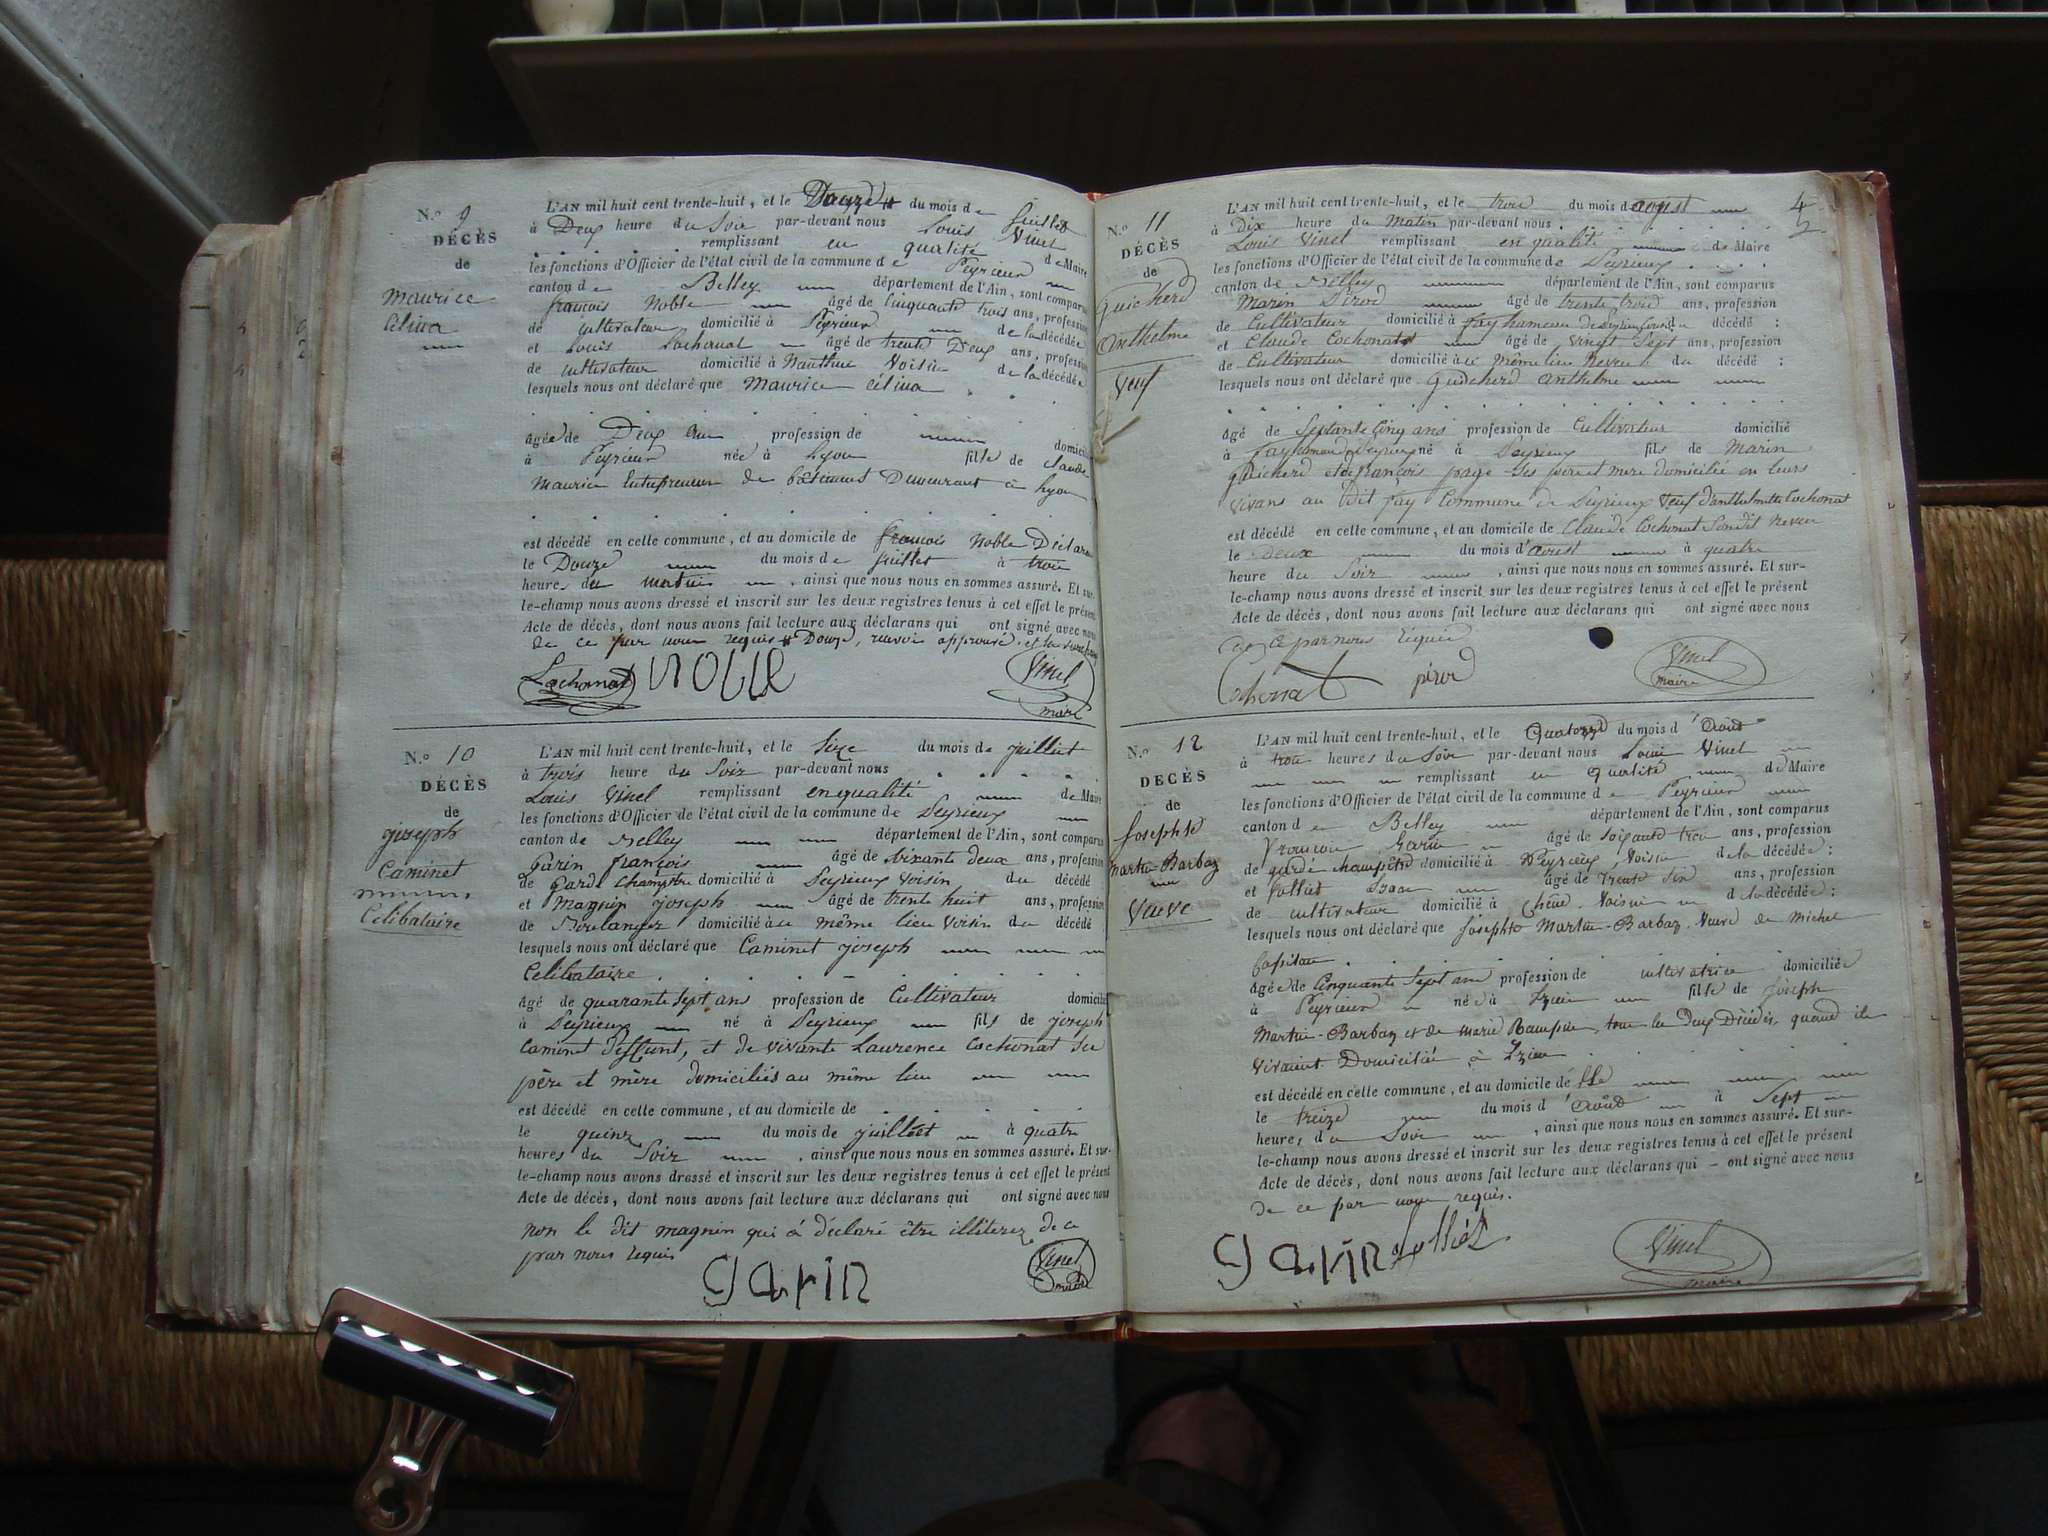 N.o 9
DÉCÈS
de
Maurice
Célina
L'AN mil huit cent trente-huit, et le Douze # du mois de Juillet
à Deux heure du Soir par-devant nous Louis Vinel
remplissant en qualité de Maire
les fonctions d'Officier de l'état civil de la commune de Peyrieux
canton de Belley département de l'Ain, sont comparus
françois Noble âgé de Cinquante trois ans, profession
de cultivateur domicilié à Peyrieux de la décédée
et Louis Cochonat âgé de trente Deux ans, profession
de cultivateur domicilié à Voisin de la décédée
lesquels nous ont déclaré que Maurice Célina
âgée de Deux ans profession de domicilié
à Peyrieux née à Lyon fille de Claude
Maurice Entrepreneur de bâtiments Demeurant à Lyon
est décédé en cette commune, et au domicile de françois Noble Déclara
le Douze du mois de Juillet à trois
heures du matin , ainsi que nous nous en sommes assuré. Et sur-
le-champ nous avons dressé et inscrit sur les deux registres tenus à cet effet le présent
Acte de décès, dont nous avons fait lecture aux déclarans qui ont signé avec nous
de ce par nous requis # Douze, renvoi approuvé.
Cochonat noble Vinel
maire
N.o 10
DÉCÈS
de
joseph
Caminet
Célibataire
L'AN mil huit cent trente-huit, et le Sixe du mois de juilliet
à trois heure du Soir par-devant nous
Louis Vinel remplissant en qualité de Maire
les fonctions d'Officier de l'état civil de la commune de Peyrieux
canton de Belley département de l'Ain, sont comparus
garin françois âgé de Soixante deux ans, profession
de garde Champêtre domicilié à Peyrieux voisin du décédé
et Magnin joseph âgé de trente huit ans, profession
de Boulanger domicilié au même lieu Voisin du décédé
lesquels nous ont déclaré que Caminet joseph
Celibataire
âgé de quarante sept ans profession de Cultivateur domicilié
à Peyrieux né à Peyrieux fils de joseph
Caminet deffunt, et de vivante Laurence Cochonat Ses
père et mère domiciliés au même lieu
est décédé en cette commune, et au domicile de
le quinz du mois de juilliet à quatre
heures du Soir , ainsi que nous nous en sommes assuré. Et sur-
le-champ nous avons dressé et inscrit sur les deux registres tenus à cet effet le présent
Acte de décès, dont nous avons fait lecture aux déclarans qui ont signé avec nous
non le dit magnin qui a déclaré être illiterez de ce
par nous requis
garin Vinel
maire
4
2
N.o 11
DÉCÈS
de
Guicherd
Anthelme
Veuf
L'AN mil huit cent trente-huit, et le trois du mois d'aoust
à Dix heure du Matin par-devant nous
Louis Vinel remplissant en qualité de Maire
les fonctions d'Officier de l'état civil de la commune de Peyrieux
canton de Belley département de l'Ain, sont comparus
Marin Pirod âgé de trente trois ans, profession
de Cultivateur domicilié à fay hameau de Peyrieux du décédé :
et Claude Cochonat âgé de Vingt Sept ans, profession
de Cultivateur domicilié au Même lieu Neveu du décédé :
lesquels nous ont déclaré que Guicherd anthelme
âgé de Septante Cinq ans profession de Cultivateur domicilié
à fay hameau de Peyrieux né à Peyrieux fils de Marin
guicherd et de françoise Ses père et mere domicilié en leurs
vivans au Dit fay Commune de Peyrieux Veuf d'anthelmette Cochonat
est décédé en cette commune, et au domicile de Claude Cochonat Son dit Neveu
le Deux du mois d'aoust à quatre
heure du Soir , ainsi que nous nous en sommes assuré. Et sur-
le-champ nous avons dressé et inscrit sur les deux registres tenus à cet effet le présent
Acte de décès, dont nous avons fait lecture aux déclarans qui ont signé avec nous
de ce par nous requis
Cochonat pirod Vinel
maire
N.o 12
DÉCÈS
de
Josephte
Martin-Barbaz
Veuve
L'AN mil huit cent trente-huit, et le Quatorze du mois d'Août
à trois heures du Soir par-devant nous Louis Vinel
remplissant en qualité de Maire
les fonctions d'Officier de l'état civil de la commune de Peyrieux
canton de Belley département de l'Ain, sont comparus
François Garin âgé de Soixante trois ans, profession
de garde champêtre domicilié à Peyrieux, Voisin de la décédée :
et âgé de trente Six ans, profession
de cultivateur domicilié à Voisin de la décédée :
lesquels nous ont déclaré que Josephte Martin-Barbaz Veuve de Michel
âgée de Cinquante Sept ans profession de cultivatrice domiciliée
à Peyrieux née à Izieu fille de Joseph
Martin-Barbaz et de Marie tous les Deux Décédés, quand ils
vivaient Domiciliés à Izieu
est décédé en cette commune, et au domicile d'elle
le treize du mois d'Août à Sept
heures du Soir , ainsi que nous nous en sommes assuré. Et sur-
le-champ nous avons dressé et inscrit sur les deux registres tenus à cet effet le présent
Acte de décès, dont nous avons fait lecture aux déclarans qui - ont signé avec nous
de ce par nous requis.
garin Vinel
maire